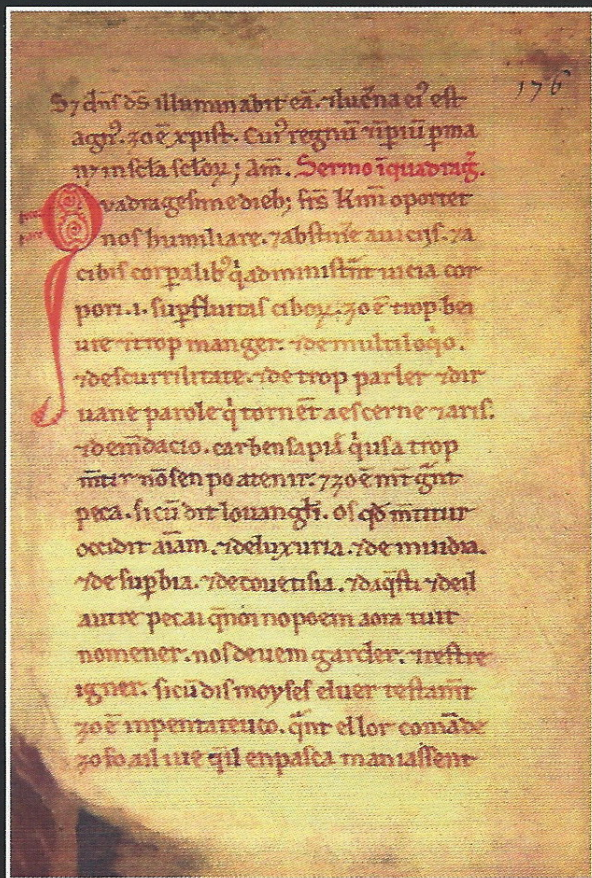 176
S; dn̄s ds̄ illuminabit eā. ⁊ lucēna ei⁹ est
agn⁹. zo ē xpist. Cui⁹ regnū ⁊ īpiū ꝑma
n; in scl̄a scl̄oꝝ; Am̄. Sermo ī quadraḡ.
Quadragesime dieb; frs̄ Km̄i oportet
nos humiliare. ⁊ abstinēe a uicijs. ⁊ a
cibis corꝑalib⁹ q̇ administn̄t uicia cor
pori .i. suꝑfluitas ciboꝝ. zo ē trop bei
ure ⁊ trop manger. ⁊ de multiloq̇o.
⁊ de scurrilitate. ⁊ de trop parler ⁊ dir
uane parole q̇ tornēt a escerne ⁊ a ris.
⁊ de m̄dacio. car ben sapiā q̇ usa trop
m̄tir nō sen po atenir. ⁊ zo ē mt̄ gn̄t
peca. sicū dit louangl̄i. Os qd̄ m̄titur
occidit aīam. ⁊ de luxuria. ⁊ de inuidia.
⁊ de suꝑbia. ⁊ de couetisia. ⁊ daq̄sti ⁊ deil
autre pecai q̄ noi no poem aora tuit
nomener. nos deuem garder. ⁊ restre
igner. sicū dis moyses el uer testam̄t
zo ē in pentateuco. q̄nt el lor comāde
zo fo ail iue q̇l en pasca maniassent